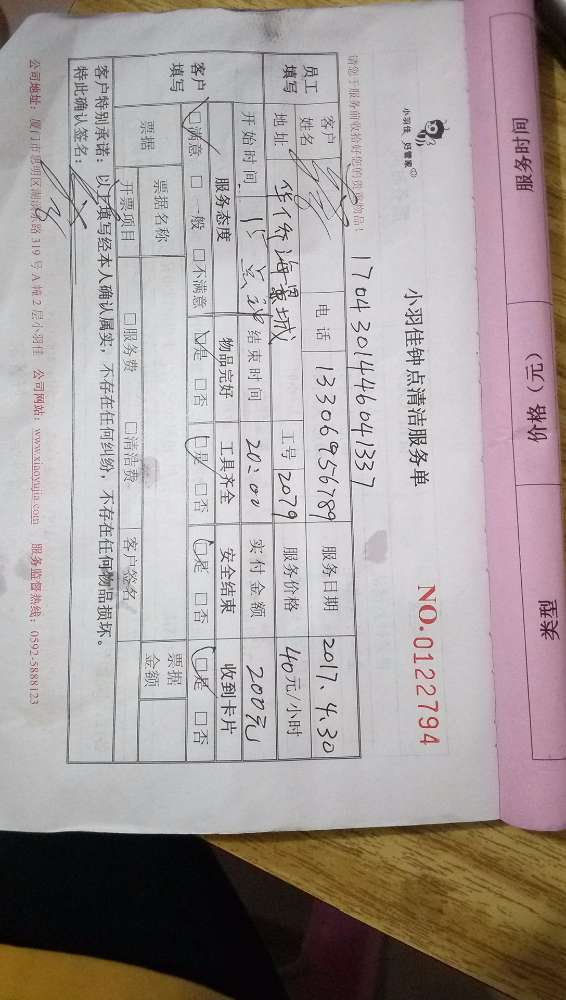 服务时间 价格（元） 类型
小羽佳 好管家
小羽佳钟点清洁服务单
NO.0122794
请您于服务前收拾好您的贵重物品！
1704301446041337
员工填写 客户姓名 电话 13306956789 服务日期 2017.4.30
地址 华侨海景城 工号 2079 服务价格 40元/小时
开始时间 15点钟 结束时间 20:00 实付金额 200元
客户填写 服务态度 物品完好 工具齐全 安全结束 收到卡片
□满意 □一般 □不满意 □是 □否 □是 □否 □是 □否 □是 □否
票据 票据名称 票据金额
开票项目 □服务费 □清洁费 客户签名
客户特别承诺：以上填写经本人确认属实，不存在任何纠纷，不存在任何物品损坏。
特此确认签名：
公司地址：厦门市思明区湖滨东路 319 号 A 幢 2 层小羽佳 公司网站：www.xiaoyujia.com 服务监督热线：0592-5888123